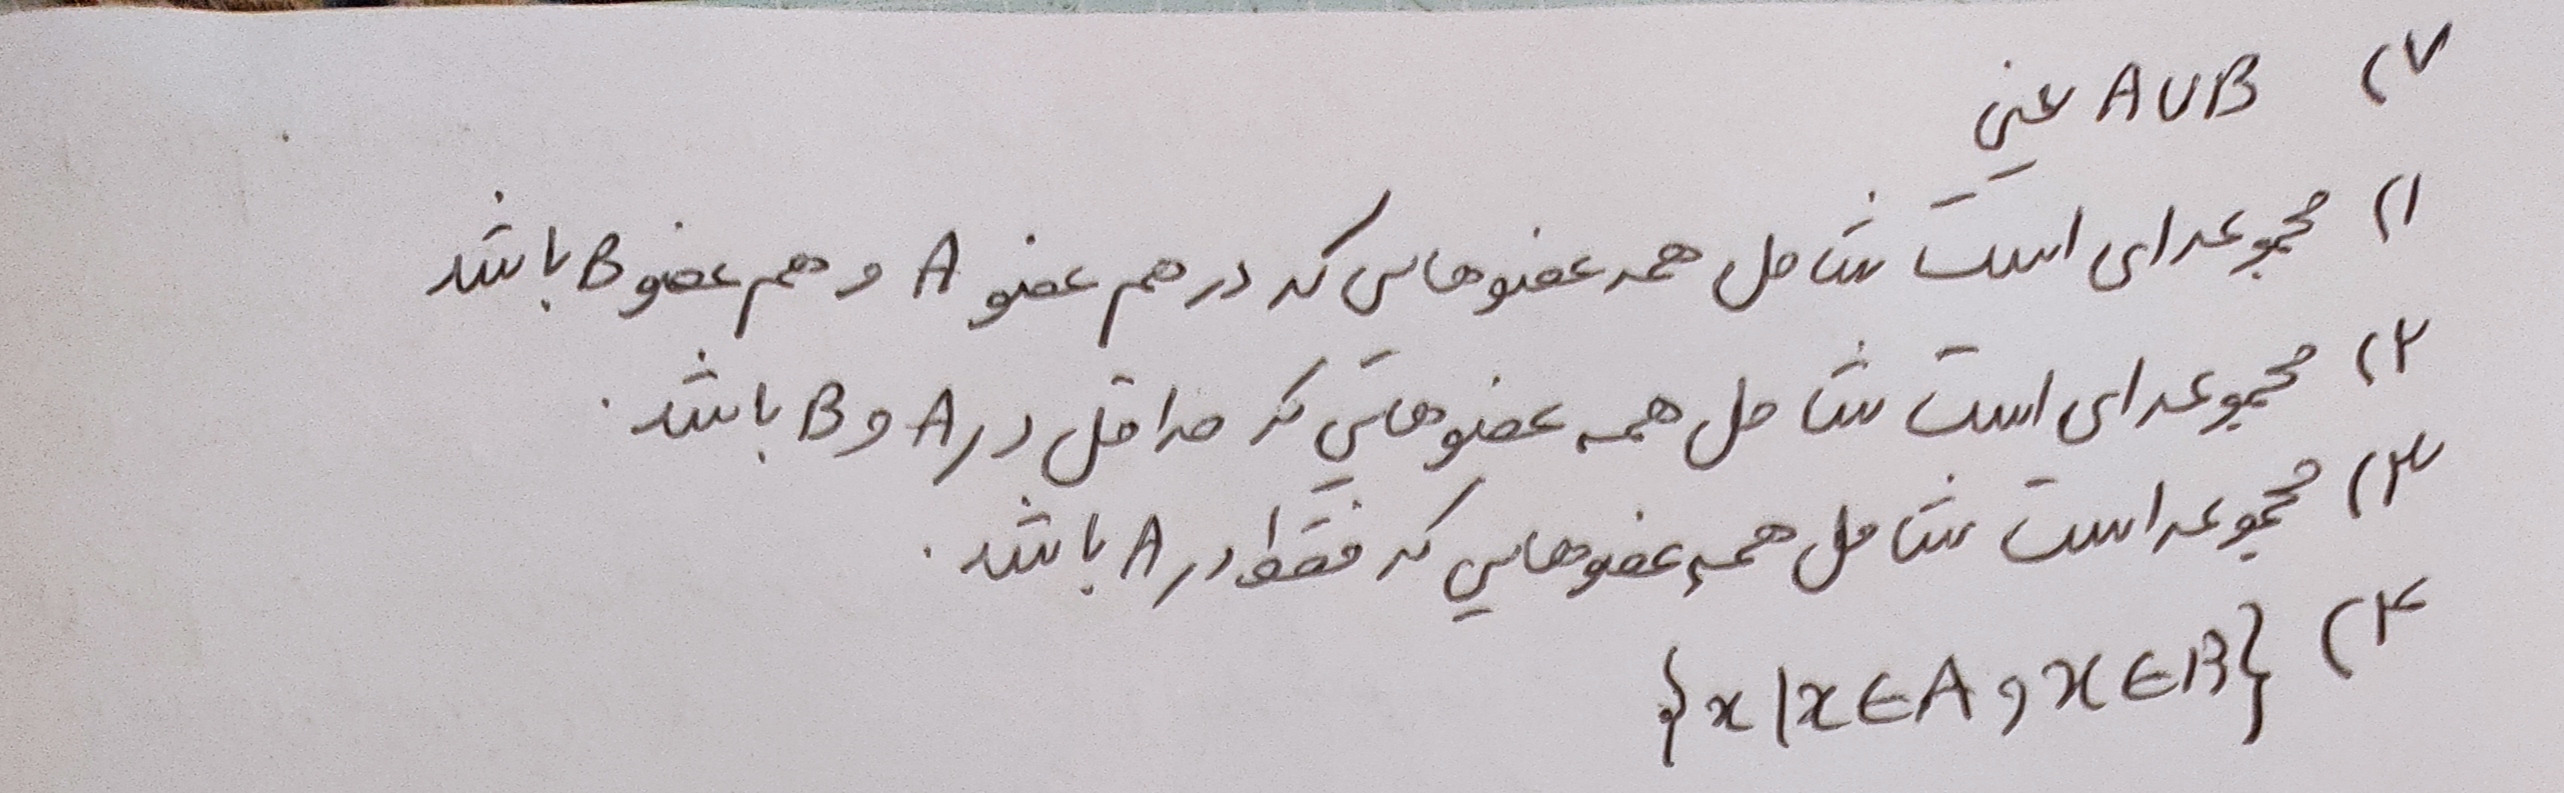 ۷) A∪B یعنی
۱) مجموعه ای است شامل همه عضوهایی که در هم عضو A و هم عضو B باشد
۲) مجموعه ای است شامل همه عضوهایی که حداقل در A و B باشد.
۳) مجموعه است شامل همه عضوهایی که فقط در A باشد.
۴) {x|x∈A و x∈B}